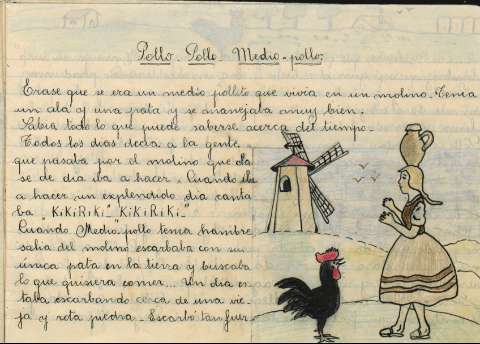 Pollo - Pollo - Medio - pollo;
Erase que se era un medio pollito que vivia en un molino. Tenia
un ala y una pata y se manejaba muy bien.
Sabia todo lo que puede saberse acerca del tiempo.
Todos los dias decia a la gente
que pasaba por el molino que cla
se de dia iba a hacer. Cuando iba
a hacer un explendido dia canta
ba "KiKiRiKi" "KiKiRiKi"
Cuando Medio-pollo tenia hambre
salia del molino escarbaba con su
única pata en la tierra y buscaba
lo que quisiera comer... Un dia es-
taba escarbando cerca de una vie-
ja y rota piedra - Escarbó tan fuer-